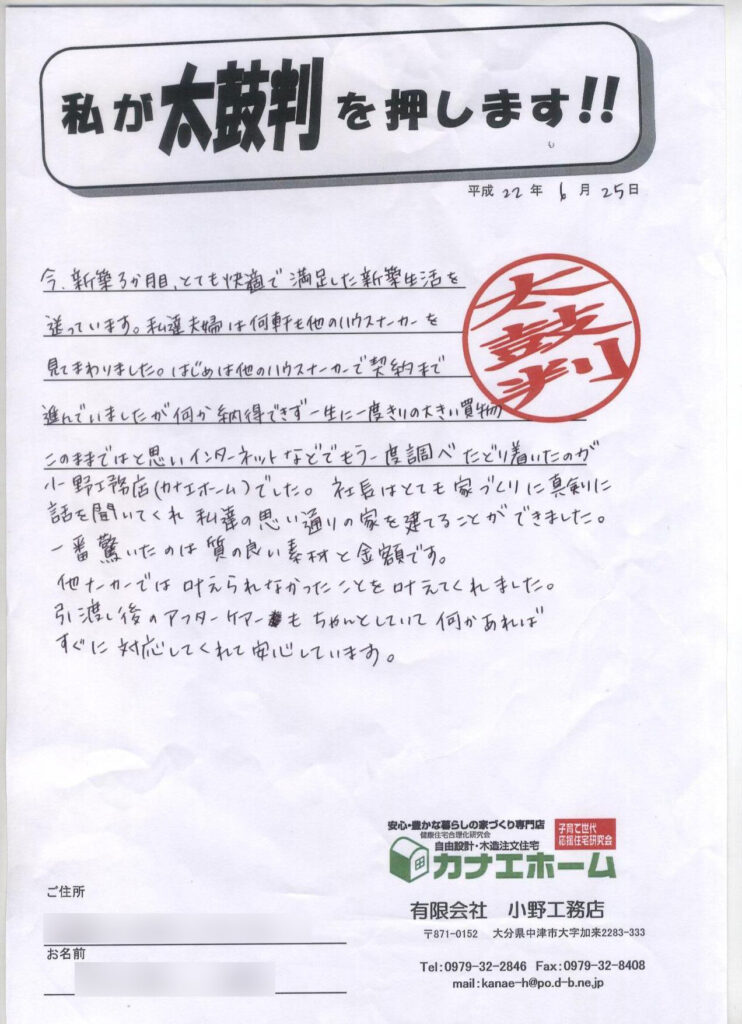 私が太鼓判を押します!!
平成22年6月25日
太鼓判
今、新築3か月目、とても快適で満足した新築生活を
送っています。私達夫婦は何軒も他のハウスメーカーを
見てまわりました。はじめは他のハウスメーカーで契約まで
進んでいましたが何か納得できず一生に一度きりの大きい買物
このままではと思いインターネットなどでもう一度調べたどり着いたのが
小野工務店(カナエホーム)でした。社長はとても家づくりに真剣に
話を聞いてくれ私達の思い通りの家を建てることができました。
一番驚いたのは質の良い素材と金額です。
他メーカーでは叶えられなかったことを叶えてくれました。
引渡し後のアフターケアーもちゃんとしていて何かあれば
すぐに対応してくれて安心しています。
安心・豊かな暮らしの家づくり専門店
健康住宅合理化研究会
自由設計・木造注文住宅
子育て世代
応援住宅研究会
カナエホーム
有限会社 小野工務店
〒871-0152 大分県中津市大字加来2283-333
Tel:0979-32-2846 Fax:0979-32-8408
mail:kanae-h@po.d-b.ne.jp
ご住所
お名前